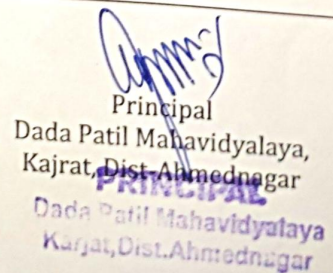 Principal
Dada Patil Mahavidyalaya,
Kajrat, Dist-Ahmednagar
PRINCIPAL
Dada Patil Mahavidyalaya
Karjat,Dist.Ahmednagar